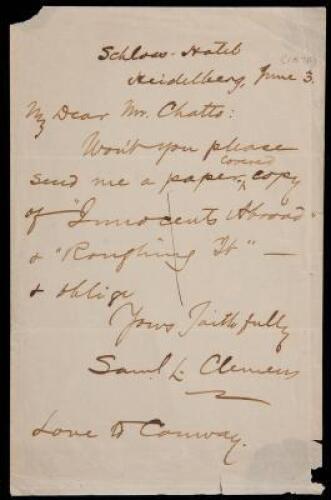 Schloss-Hotel
(1878)
Heidelberg, June 3.
My Dear Mr. Chatto:
Won't you please
covered
send me a paper ^ copy
of "Innocents Abroad"
& "Roughing It" —
& oblige
Yours Faithfully
Saml. L. Clemens
Love to Conway.